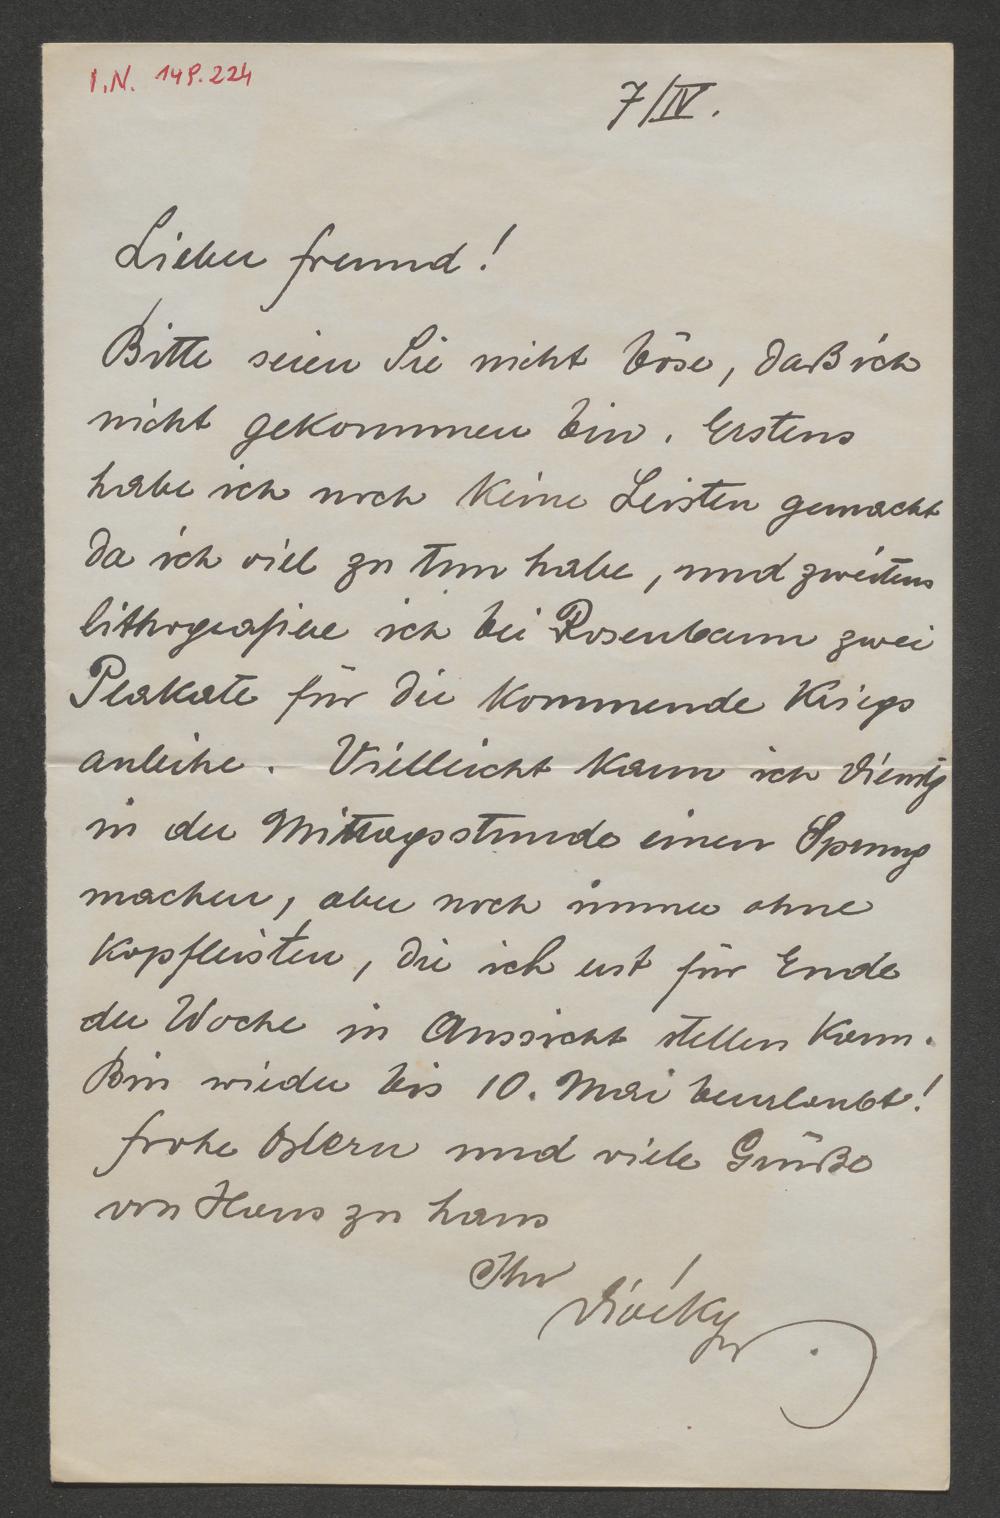 I.N. 149.224
7/IV.
Lieber Freund!
Bitte seien Sie nicht böse, daß ich
nicht gekommen bin. Erstens
habe ich noch keine Leisten gemacht
da ich viel zu tun habe, und zweitens
lithografiere ich bei Rosenbaum zwei
Plakate für die kommende Kriegs
anleihe. Vielleicht kann ich Dienstg
in der Mittagsstunde einen Sprung
machen, aber noch immer ohne
Kopfleisten, die ich erst für Ende
der Woche in Aussicht stellen kann.
Bin wieder bis 10. Mai beurlaubt!
frohe Ostern und viele Grüße
von Haus zu Haus
Ihr